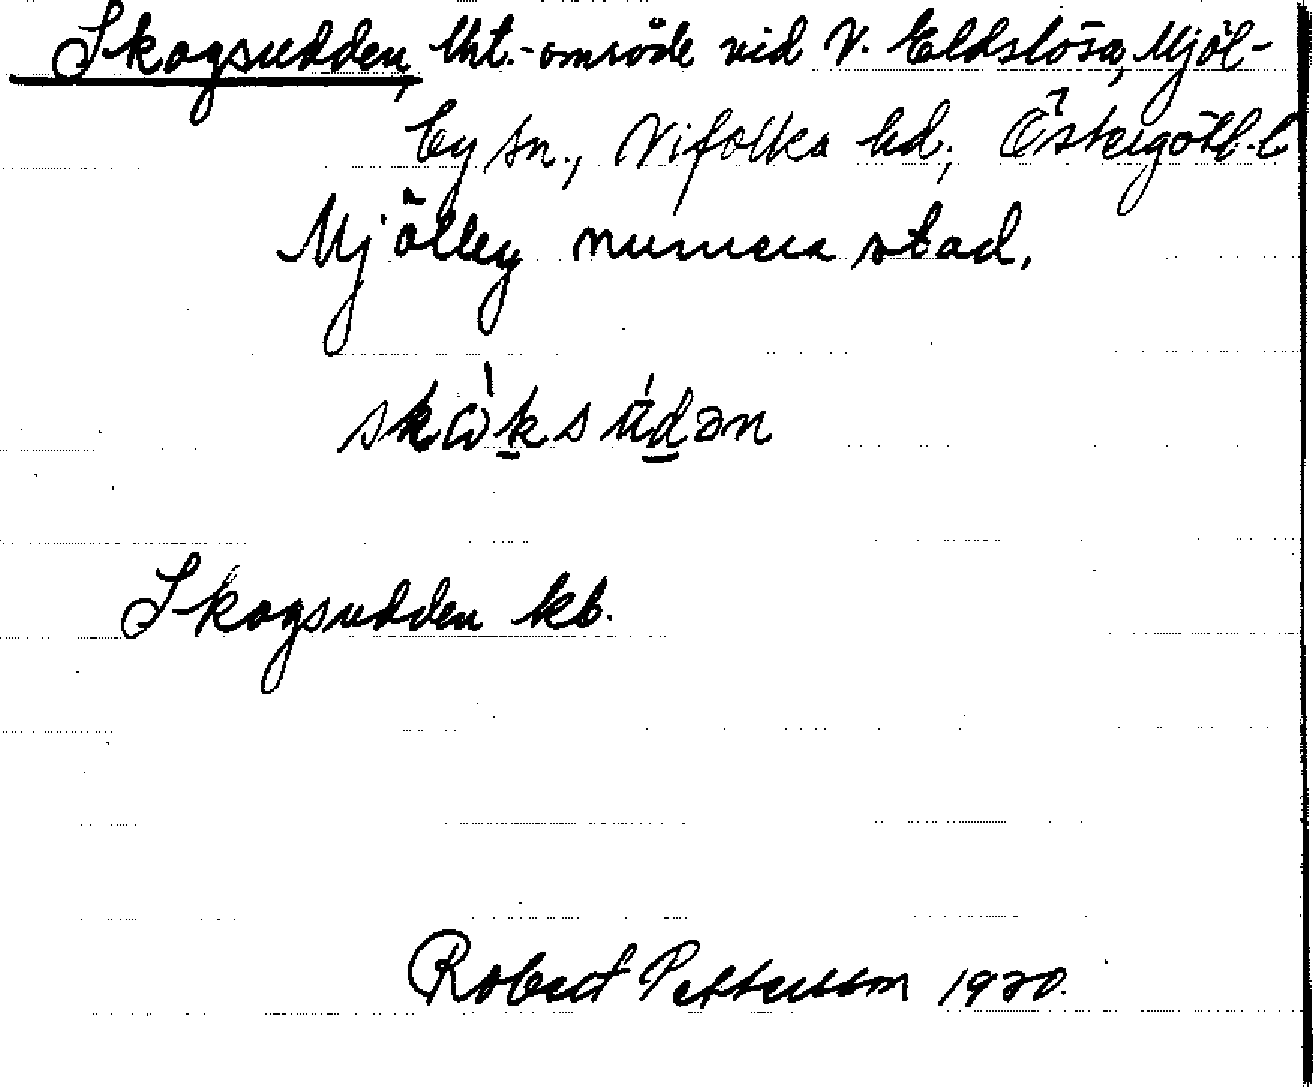 Skogsudden, lht.-område vid V. Eldslösa, Mjöl-
by sn., Vifolka hd, Östergötl. l
Mjölby numera stad.
skὼksúdən
Skogsudden kb.
Robert Pettersson 1920.